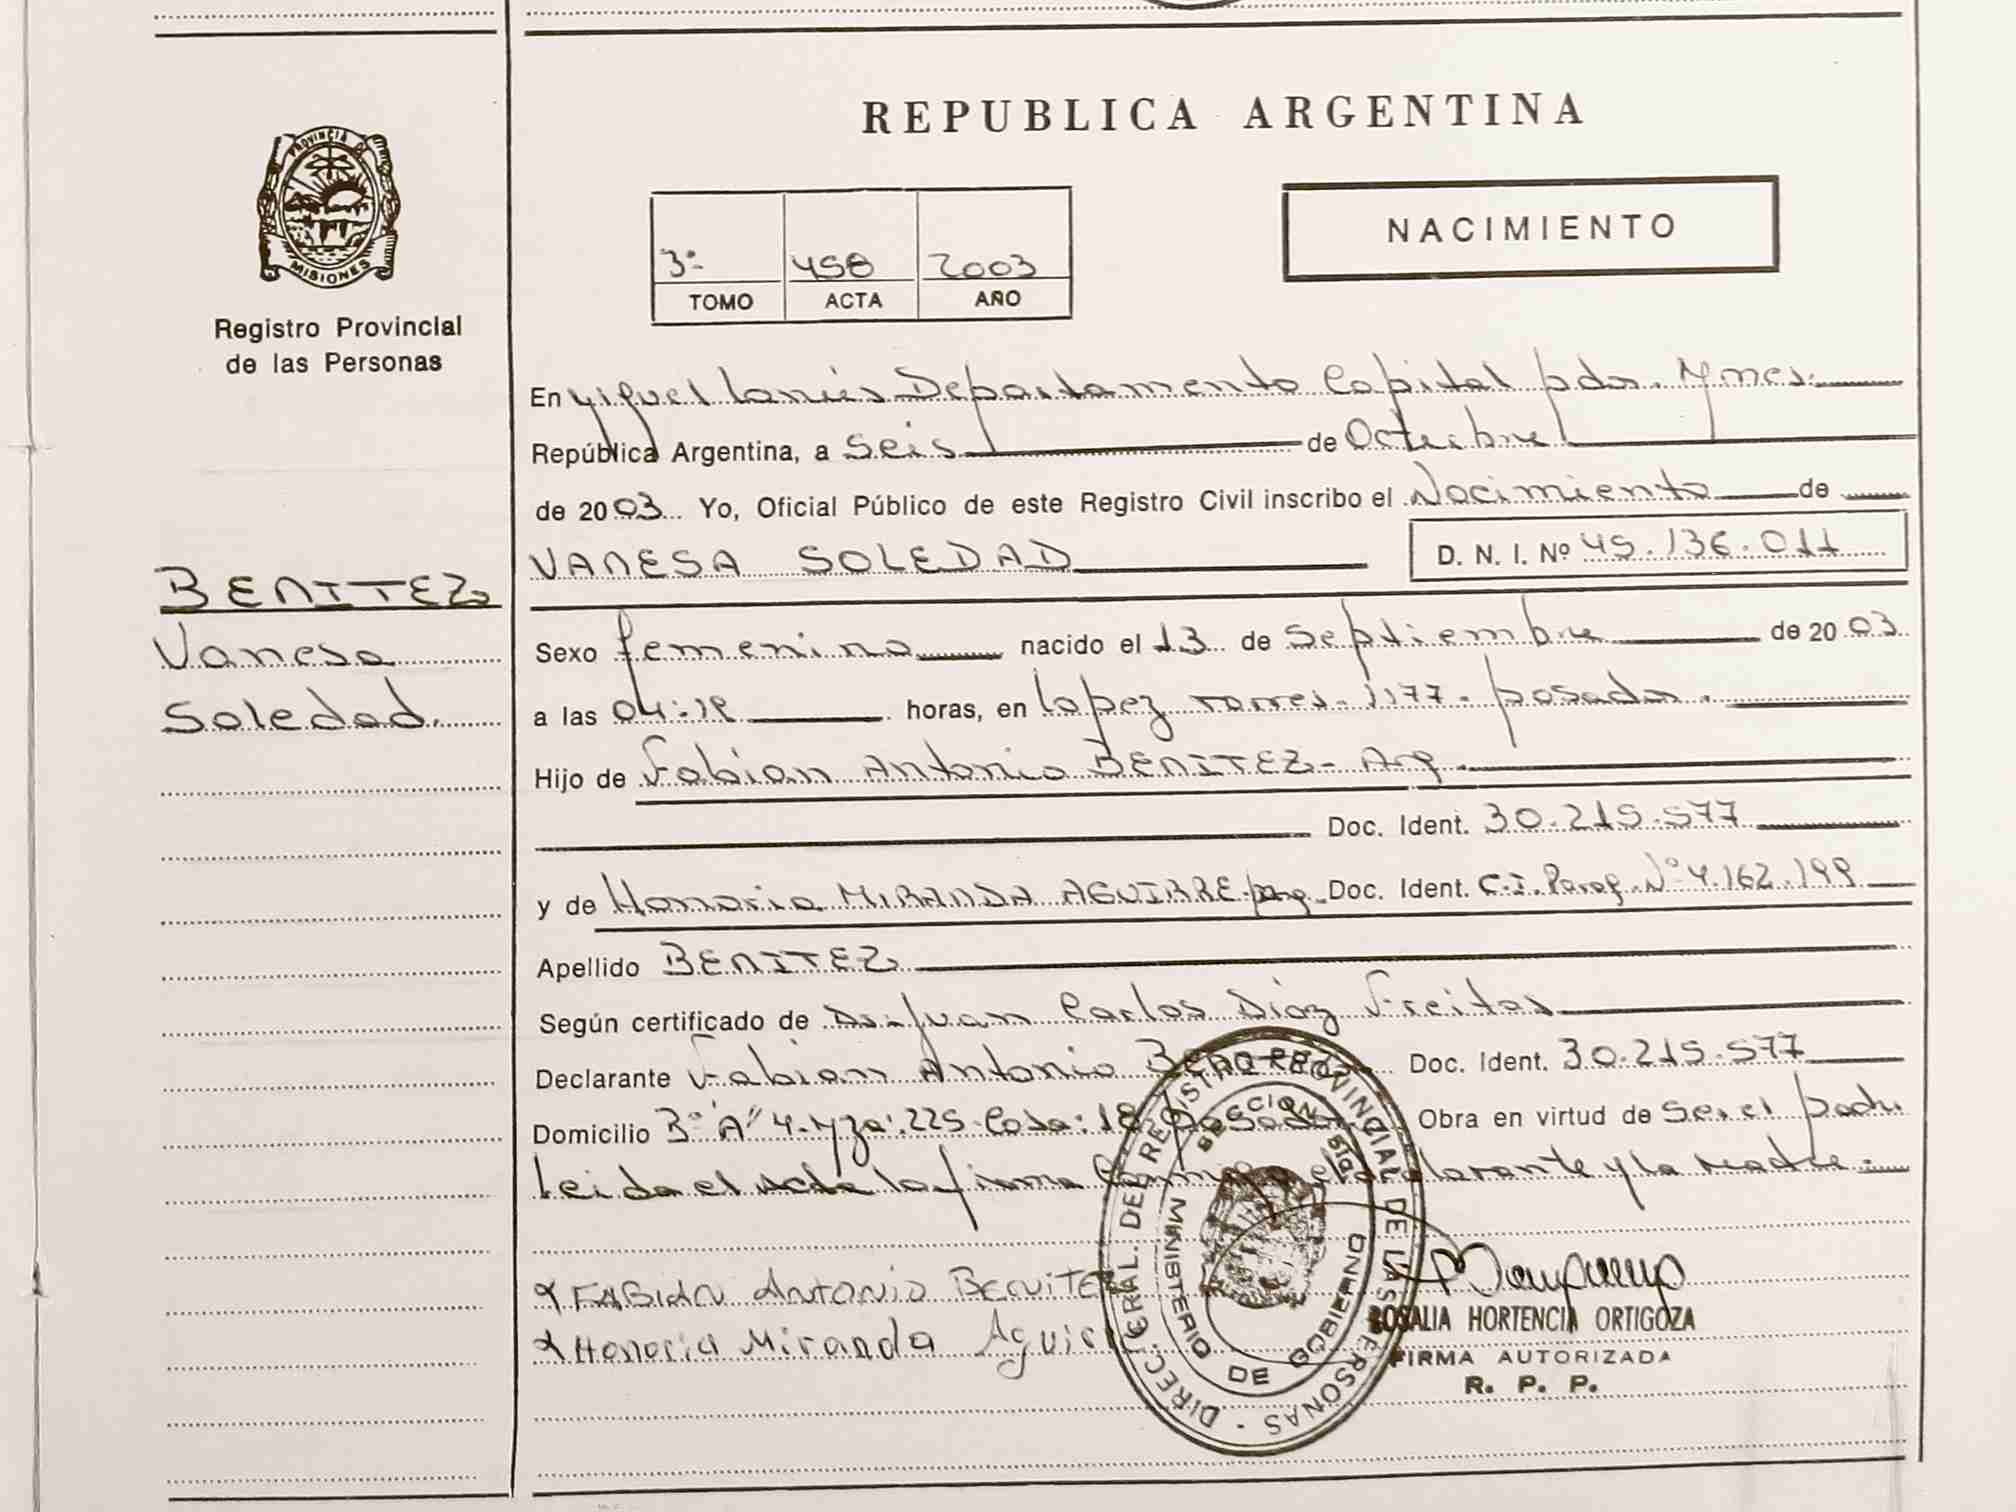 PROVINCIA DE
MISIONES
Registro Provincial
de las Personas
BENITEZ
Vanesa
Soledad.
REPUBLICA ARGENTINA
NACIMIENTO
3º 458 2003
TOMO ACTA AÑO
En Miguel Lanús Departamento Capital pdas. Mnes.
República Argentina, a seis de Octubre
de 2003 Yo, Oficial Público de este Registro Civil inscribo el Nacimiento de
VANESA SOLEDAD D. N. I. Nº 45.136.011
Sexo femenino nacido el 13 de Septiembre de 2003
a las 04:18 horas, en Lopez Torres. 1177. posadas.
Hijo de Fabian Antonio BENITEZ- Arg.
Doc. Ident. 30.215.577
y de Honoria MIRANDA AGUIRRE parag. Doc. Ident. C.I. Parag. Nº 4.162.199
Apellido BENITEZ
Según certificado de Dr. Juan Carlos Díaz Freitas
Declarante Fabian Antonio BENITEZ Doc. Ident. 30.215.577
Domicilio Bº "A" 4. Mza: 225. Casa: 18 Posadas Obra en virtud de ser el padre
Leida el acta la firma conmigo el declarante y la madre.
FABIAN ANTONIO BENITEZ
Honoria Miranda Aguirre
DIREC. GRAL. DEL REGISTRO PROVINCIAL DE LAS PERSONAS
MINISTERIO DE GOBIERNO
ROSALIA HORTENCIA ORTIGOZA
FIRMA AUTORIZADA
R. P. P.